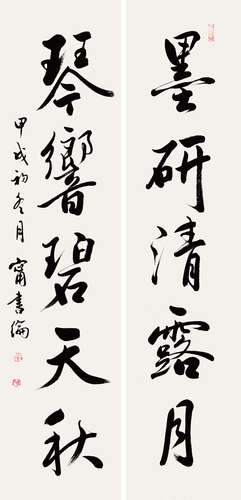 墨研清露月
琴響碧天秋
甲戌初冬月
甯書綸